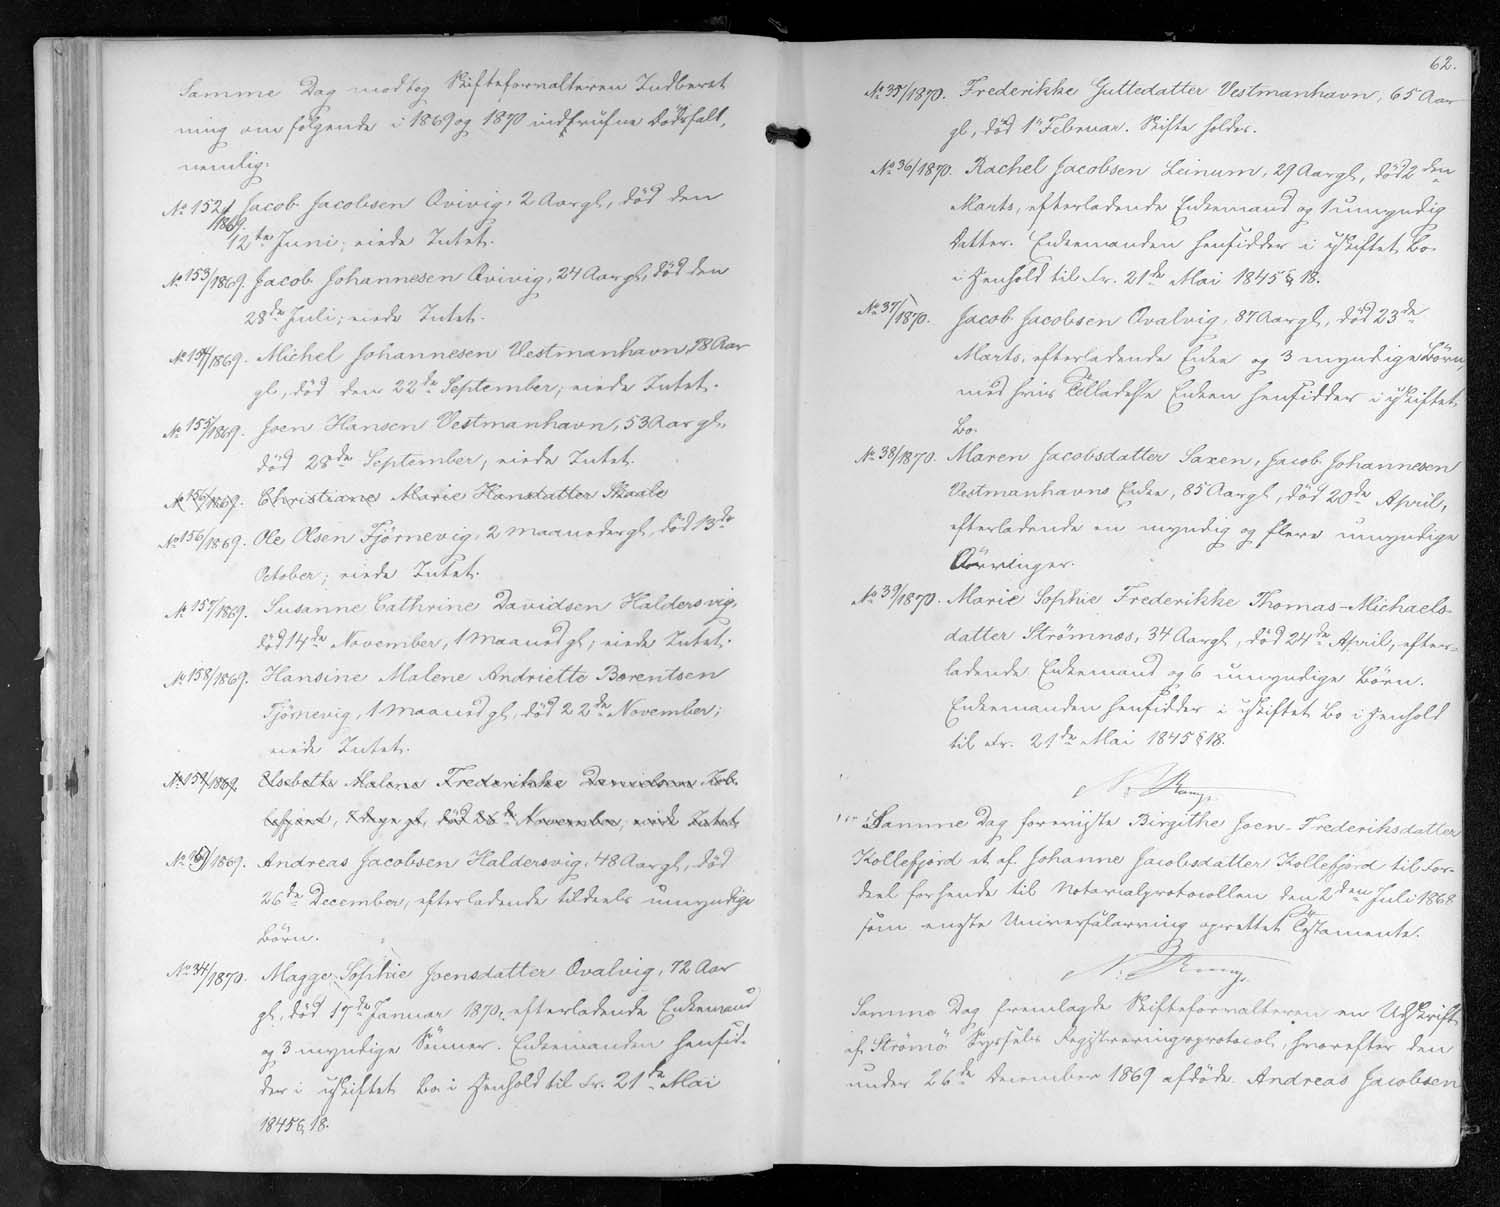 Samme Dag modtog Skifteforvalteren Indberet
ning om følgende i 1869 og 1870 indtrufne Dødsfald,
nemlig:
No 152/1869. Jacob Jacobsen Qvivig, 2 Aar gl., død den
12te Juni; eiede Intet.
No 153/1869. Jacob Johannesen Qvivig, 24 Aar gl., død den
28de Juli; eiede Intet.
No 154/1869. Michel Johannesen Vestmanhavn, 78 Aar
gl., død den 22de September; eiede Intet.
No 155/1869. Joen Hansen Vestmanhavn, 53 Aar gl.,
død 28de September; eiede Intet.
No 156/1869. Christiane Marie Hansdatter Skaale
No 156/1869. Ole Olsen Tjørnevig, 2 Maaneder gl., død 13de
October; eiede Intet.
No 157/1869. Susanne Cathrine Davidsen Haldersvig,
død 14de November, 1 Maaned gl; eiede Intet.
No 158/1869. Hansine Malene Andriette Berentsen
Tjørnevig, 1 Maaned gl., død 22de November;
eiede Intet.
No 159/1869. Elsebeth Malene Frederikke Danielsen Kol
lefjord, Dage gl., død 26de November, eiede Intet.
No 159/1869. Andreas Jacobsen Haldersvig, 48 Aar gl., død
26de December, efterladende tildeels umyndige
Børn.
No 34/1870. Magge Sophie Joensdatter Qvalvig, 72 Aar
gl., død 17de Januar 1870, efterladende Enkemand
og 3 myndige Sønner. Enkemanden hensid-
der i uskiftet Bo i Henhold til Fr. 21de Mai
1845 § 18.
62.
No 35/1870. Frederikke Guttedatter Vestmanhavn, 65 Aar
gl., død 1' Februar. Skifte holdes.
No 36/1870. Rachel Jacobsen Leinum, 29 Aar gl., død 2den
Marts, efterladende Enkemand og 1 umyndig
Datter. Enkemanden hensidder i uskiftet Bo
i Henhold til Fr. 21de Mai 1845 § 18.
No 37/1870. Jacob Jacobsen Qvalvig, 87 Aar gl., død 23de
Marts, efterladende Enke og 3 myndige Børn,
med hvis Tilladelse Enken hensidder i uskiftet
Bo.
No 38/1870. Maren Jacobsdatter Saxen, Jacob Johannesen
Vestmanhavns Enke, 85 Aar gl., død 20de April,
efterladende en myndig og flere umyndige
Arvinger.
No 39/1870. Marie Sophie Frederikke Thomas-Michaels-
datter Strømnæs, 34 Aar gl., død 24de April, efter-
ladende Enkemand og 6 umyndige Børn.
Enkemanden hensidder i uskiftet Bo i Henhold
til Fr. 21de Mai 1845 § 18.
Samme Dag foreviste Birgithe Joen-Frederiksdatter
Kollefjord et af Johanne Jacobsdatter Kollefjord til For-
deel for hende til Notarialprotocollen den 2den Juli 1868
som eneste Universalarving oprettet Testamente.
Samme Dag fremlagde Skifteforvalteren en Udskrift
af Strømø Syssels Registreringsprotocol, hvorefter den
under 26de December 1869 afdøde Andreas Jacobsen